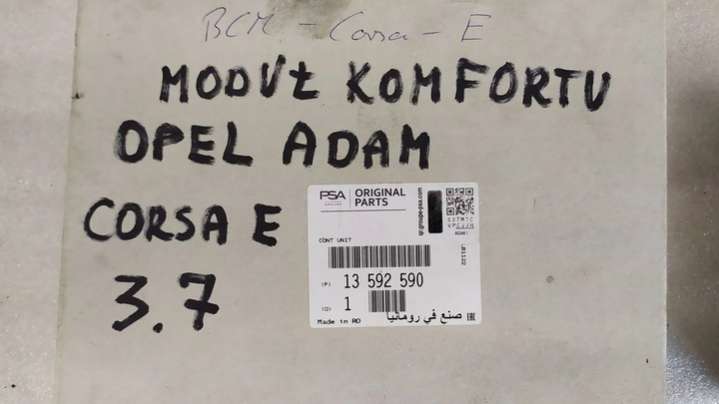 BCM - Corsa - E
MODUŁ KOMFORTU
OPEL ADAM
CORSA E
3.7
PSA
ORIGINAL
PARTS
CONT UNIT
(P) 13 592 590
(Q) 1
Made in RO
صنع في رومانيا